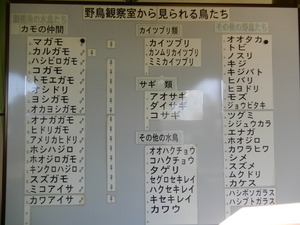 野鳥観察室から見られる鳥たち
カモの仲間
マガモ
カルガモ
ハシビロガモ
コガモ
トモエガモ
オシドリ
ヨシガモ
オカヨシガモ
オナガガモ
ヒドリガモ
アメリカヒドリ
ホシハジロ
ホオジロガモ
キンクロハジロ
スズガモ
ミコアイサ
カワアイサ
カイツブリ類
カイツブリ
カンムリカイツブリ
ミミカイツブリ
サギ 類
アオサギ
ダイサギ
コサギ
その他の水鳥
オオハクチョウ
コハクチョウ
タゲリ
セグロセキレイ
ハクセキレイ
キセキレイ
カワウ
オオタカ
トビ
ノスリ
キジ
キジバト
ヒバリ
ヒヨドリ
モズ
ジョウビタキ
ツグミ
シジュウカラ
エナガ
ホオジロ
カワラヒワ
シメ
スズメ
ムクドリ
カケス
ハシボソガラス
ハシブトガラス